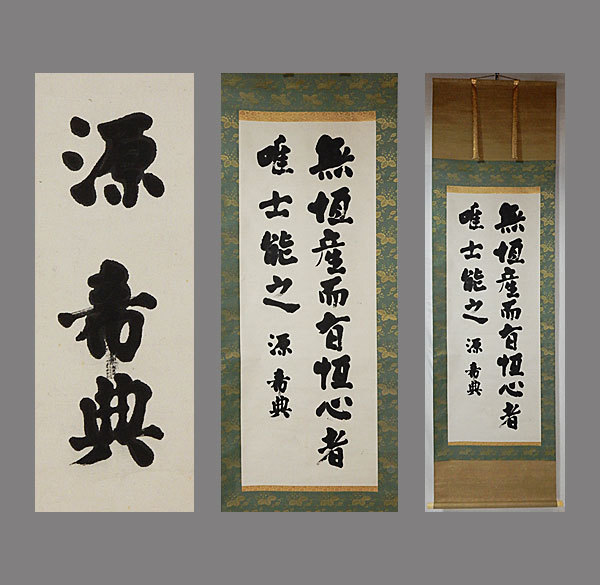 源希典
無恒産而有恒心者
唯士能之 源希典
無恒産而有恒心者
唯士能之 源希典